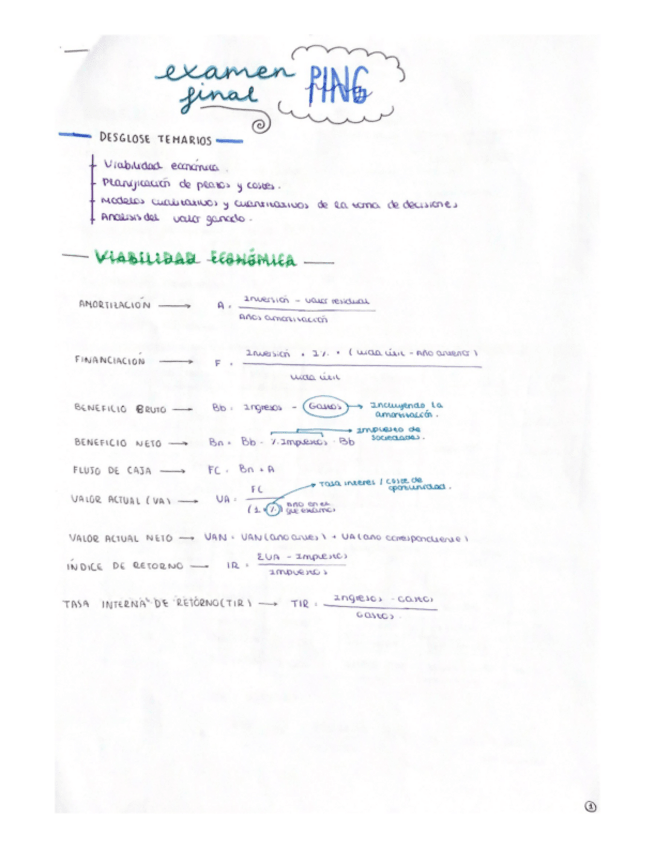 examen final PING
DESGLOSE TEMARIOS
Viabilidad económica.
Planificación de plazos y costes.
Modelos cualitativos y cuantitativos de la toma de decisiones
Análisis del valor ganado.
VIABILIDAD ECONÓMICA
AMORTIZACIÓN → A = Inversión - valor residual
Años amortización
FINANCIACIÓN → F = Inversión * I% * (vida útil - Año anterior)
vida útil
BENEFICIO BRUTO → Bb = Ingresos - Gastos → Incluyendo la amortización.
BENEFICIO NETO → Bn = Bb - % Impuestos · Bb → Impuesto de sociedades.
FLUJO DE CAJA → FC = Bn + A
VALOR ACTUAL (VA) → VA = FC → Tasa interés / coste de oportunidad.
(1 + %) año en el que estamos
VALOR ACTUAL NETO → VAN = VAN (año antes) + VA (año correspondiente)
ÍNDICE DE RETORNO → IR = ΣVA -
TASA INTERNA DE RETORNO (TIR) → TIR = Ingresos - Gastos
Gastos
1